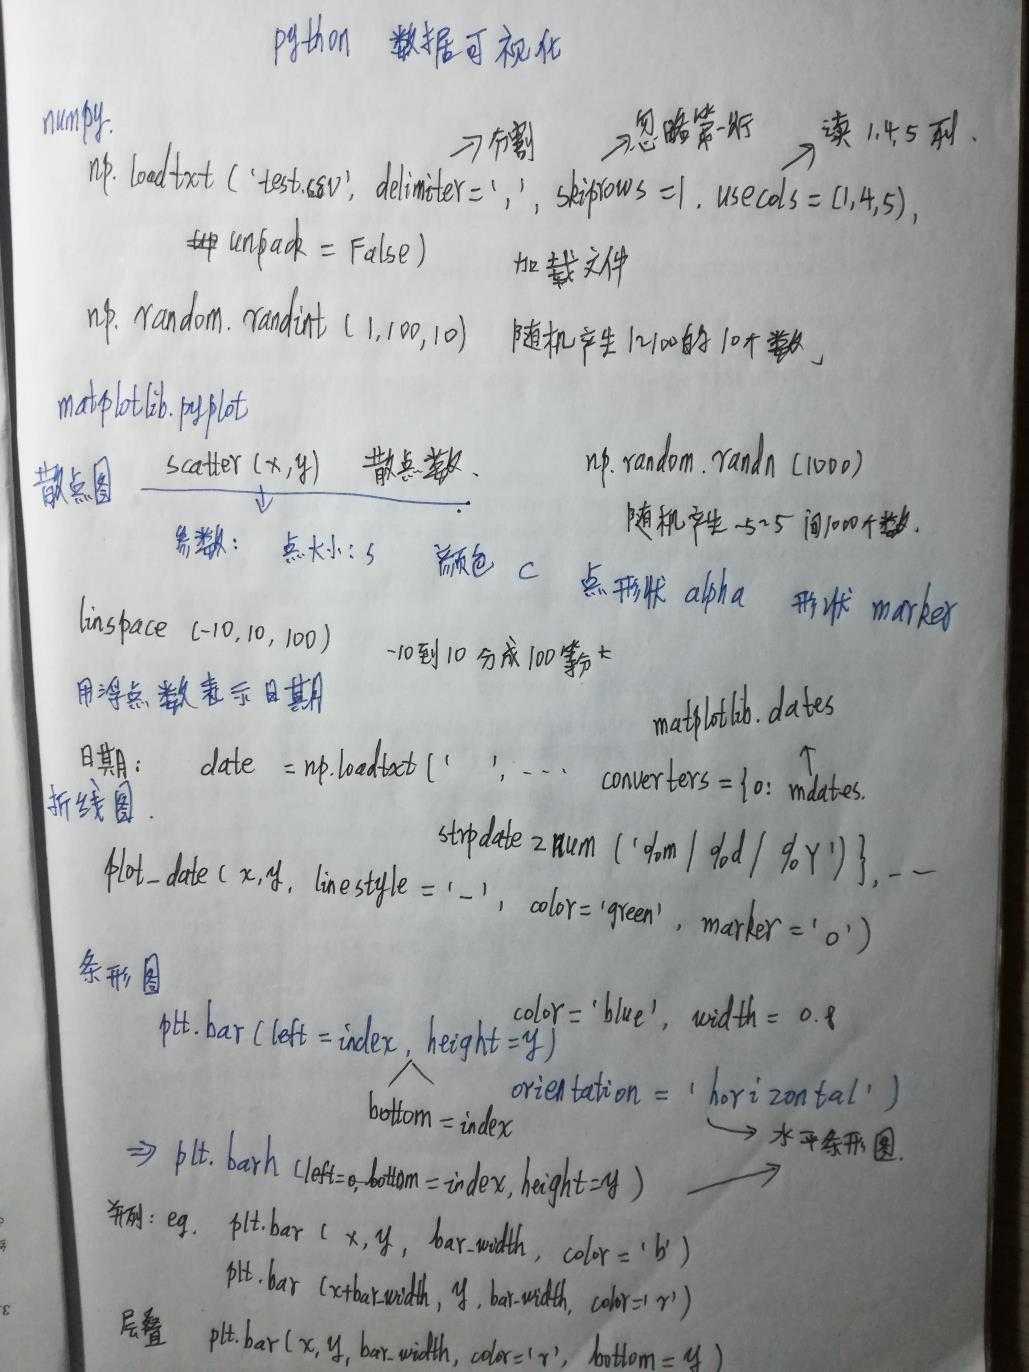 python 数据可视化
numpy.
→分割 →忽略第一行 读 1,4,5 列.
np. loadtxt ('test.csv', delimiter=',', skiprows =1, usecols = (1,4,5),
unpack = False) 加载文件
np. random. randint (1,100,10) 随机产生1~100的10个数
matplotlib.pyplot
散点图 scatter (x,y) 散点数. np.random.randn (1000)
随机产生 -5~5 间1000个数.
参数: 点大小: s 颜色 c 点形状 alpha 形状 marker
linspace (-10,10,100) -10到10 分成100等分
用浮点数表示日期
matplotlib.dates
日期: date = np.loadtxt (' ', --- converters = {0: mdates.
折线图.
strpdate2num ('%m/%d/%Y')}, --
plot_date (x,y, linestyle = '-', color='green', marker='o')
条形图
plt.bar (left = index, height=y) color='blue', width = 0.8
orientation = 'horizontal')
bottom = index
→ 水平条形图.
⇒ plt. barh (left=0, bottom = index, height=y)
并列: eg. plt.bar ( x, y, bar_width, color = 'b')
plt.bar (x+bar_width, y, bar_width, color='r')
层叠 plt.bar(x, y, bar_width, color='r', bottom = y)